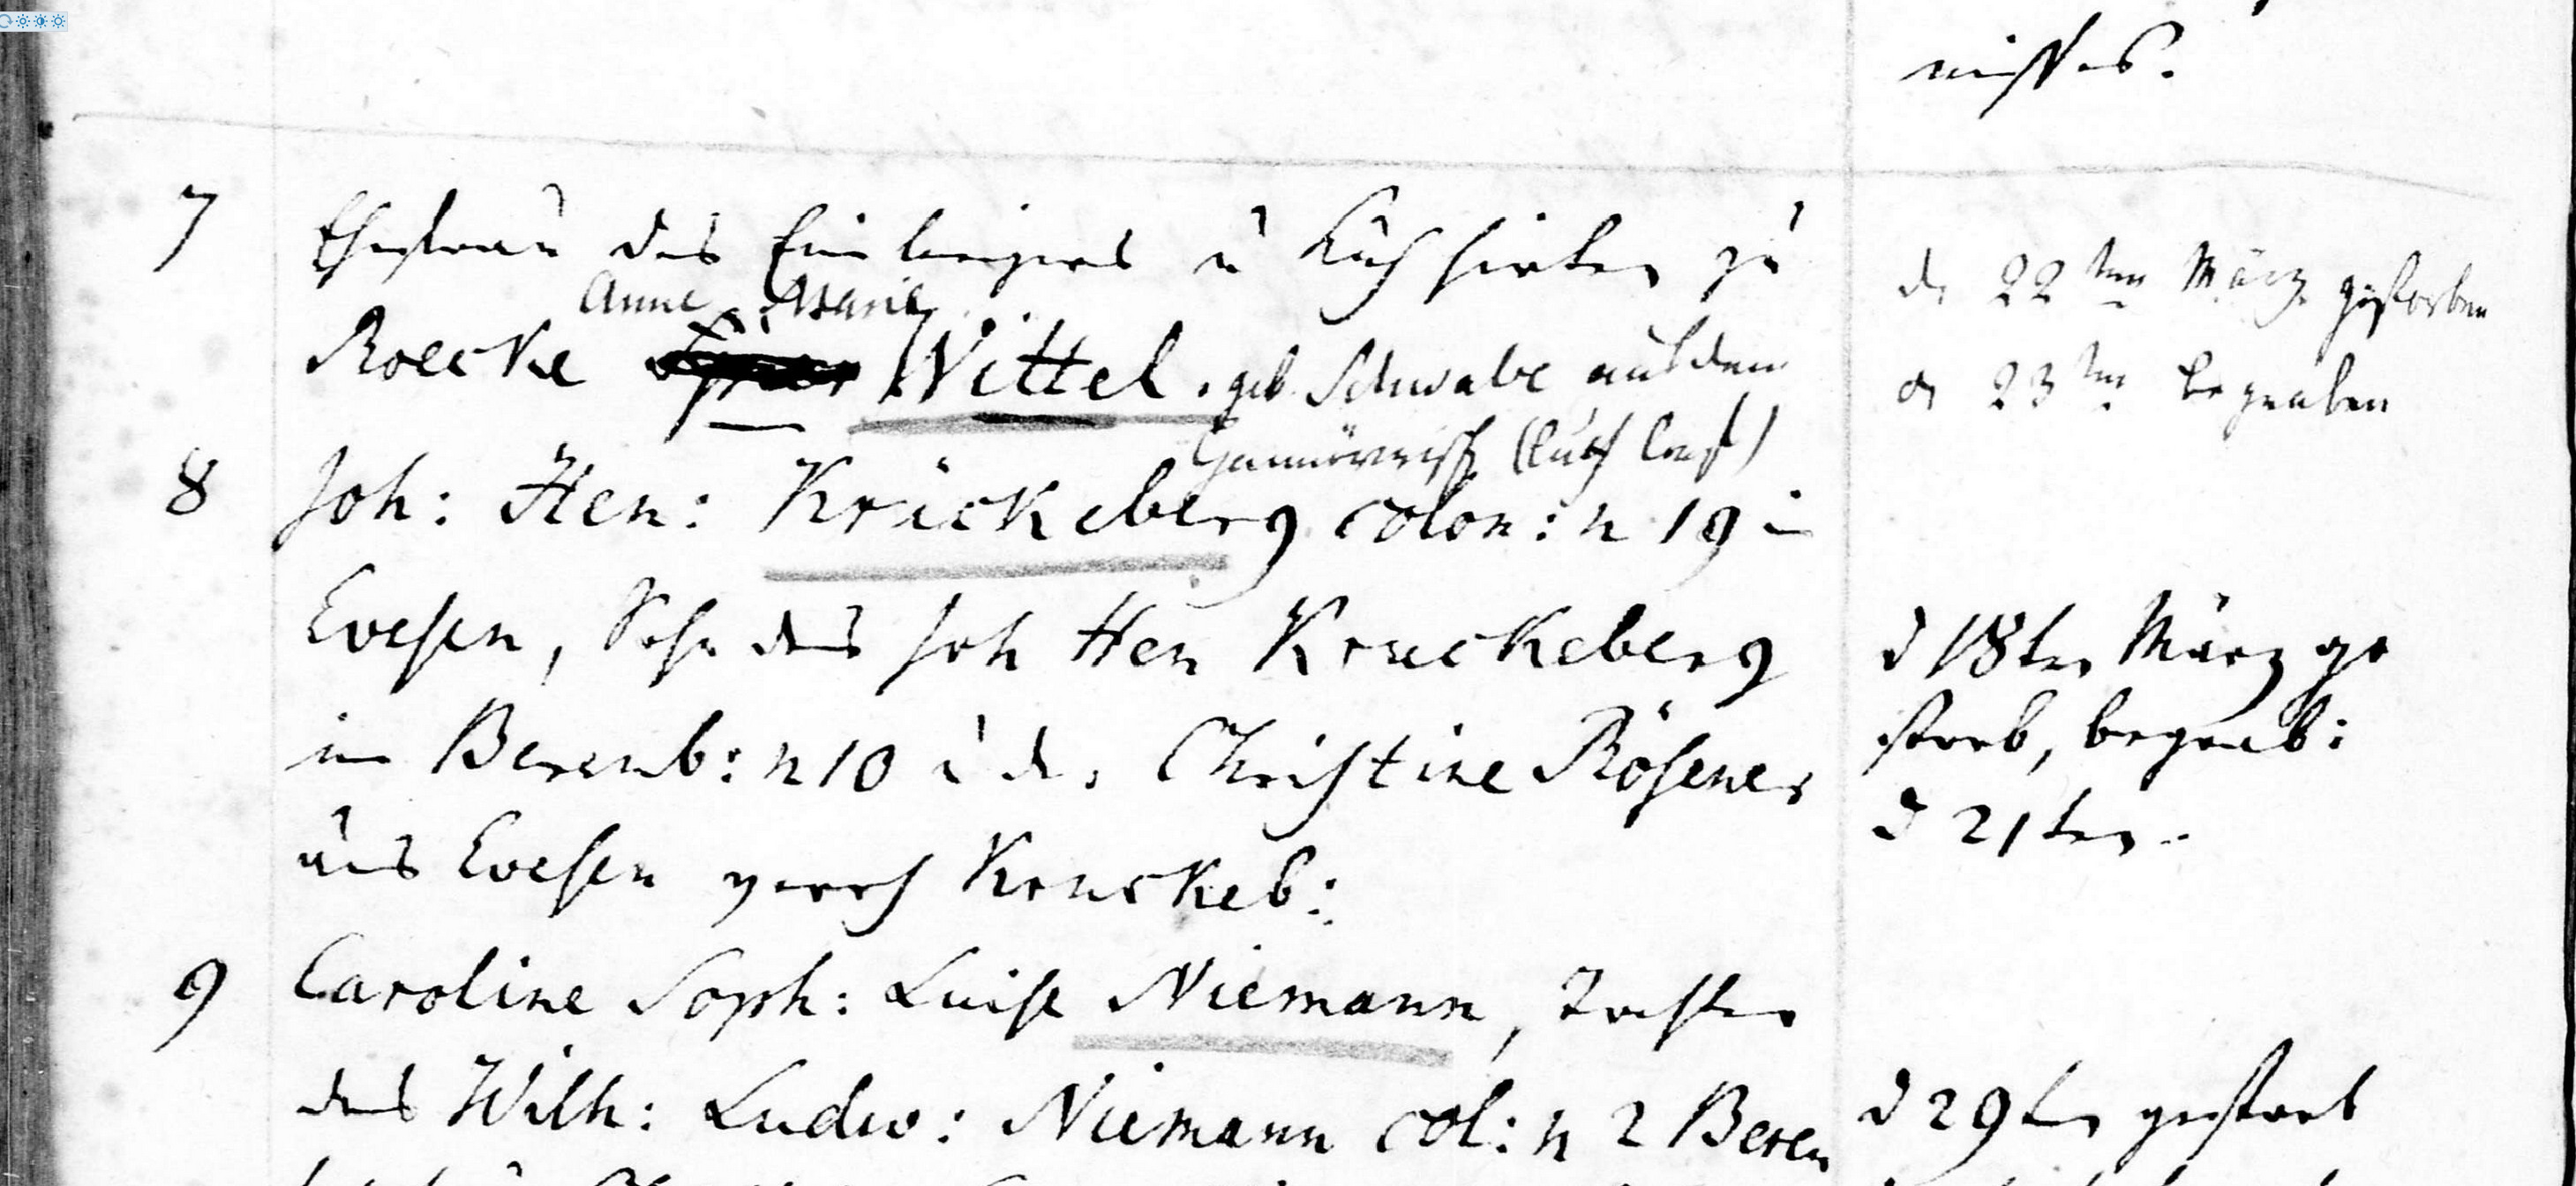 nisses.
7 Ehefrau des Einliegers u Kuhhirten zu
Anne Marie
Roecke Wittel. geb Schwabe aus dem
Hannövrisch (luth Conf)
d. 22ten März gestorben
d 23ten begraben
8 Joh: Hen: Krückeberg colon: n 19 in
Evesen, Sohn des Joh Hen Kruckeberg
in Berenb: n 10 u der Christine Rösener
aus Evesen verh Kruckeb:
d 18ten März ge
storb, begrab:
d 21ten.
9 Caroline Soph: Luise Niemann, Tochter
des Wilh: Ludw: Niemann col: n 2 Beren
d 29ten gestorb